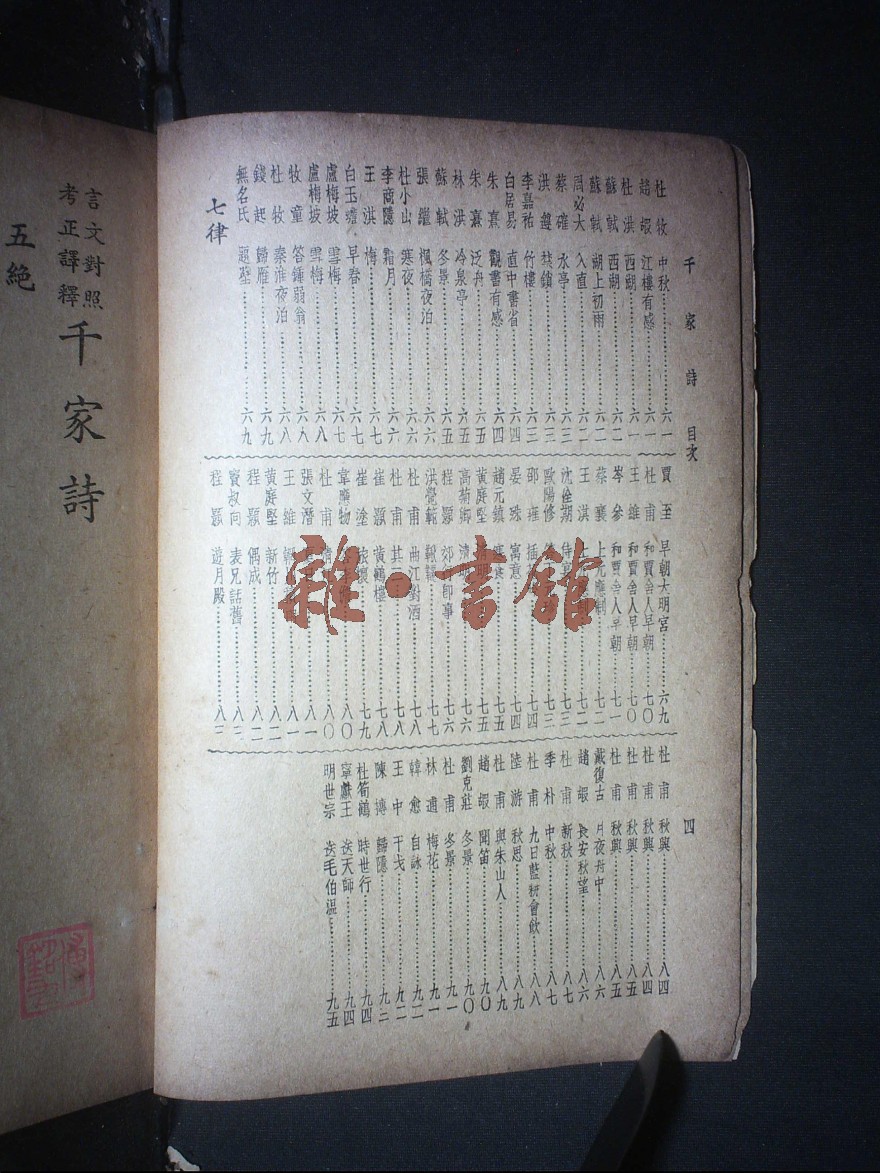 千家詩 目次 四
杜牧 中秋 六一
趙嘏 江樓有感 六一
杜淇 西湖 六一
蘇軾 西湖 六二
蘇軾 湖上初雨 六二
周必大 入直 六二
蔡確 水亭 六三
洪遵 禁鎖 六三
李嘉祐 竹樓 六三
白居易 直中書省 六四
朱熹 觀書有感 六四
朱熹 泛舟 六五
林洪 冷泉亭 六五
蘇軾 冬景 六五
張繼 楓橋夜泊 六六
杜小山 寒夜 六六
李商隱 霜月 六六
王淇 梅 六七
白玉蟾 早春 六七
盧梅坡 雪梅 六七
盧梅坡 雪梅 六八
牧童 答鍾弱翁 六八
杜牧 秦淮夜泊 六八
錢起 歸雁 六九
無名氏 題壁 六九
七律
賈至 早朝大明宮 六九
杜甫 和賈舍人早朝 七〇
王維 和賈舍人早朝 七〇
岑參 和賈舍人早朝 七一
蔡襄 上元應制 七一
王淇 七二
沈佺期 侍 七三
歐陽修 七三
邵雍 插 七四
晏殊 寓意 七四
趙元鎮 寒食 七五
黃庭堅 清明 七五
高菊卿 清明 七六
程顥 郊行即事 七六
洪覺範 鞦韆 七七
杜甫 曲江對酒 七八
杜甫 其二 七八
崔顥 黃鶴樓 七八
崔塗 旅懷 七九
韋應物 八〇
杜甫 八〇
張文潛 八一
王維 八一
黃庭堅 新竹 八二
程顥 偶成 八二
竇叔向 表兄話舊 八三
程顥 遊月殿 八三
杜甫 秋興 八四
杜甫 秋興 八四
杜甫 秋興 八五
杜甫 秋興 八五
戴復古 月夜舟中 八六
趙嘏 長安秋望 八六
杜甫 新秋 八七
季朴 中秋 八七
杜甫 九日藍田會飲 八八
陸游 秋思 八九
杜甫 與朱山人 八九
趙嘏 聞笛 九〇
劉克莊 冬景 九〇
杜甫 冬景 九一
林逋 梅花 九一
韓愈 自詠 九二
王中 干戈 九二
陳摶 歸隱 九三
杜筍鶴 時世行 九四
寧獻王 送天師 九四
明世宗 送毛伯溫 九五
言文對照
考正譯釋
千家詩
五絕
雜·書館